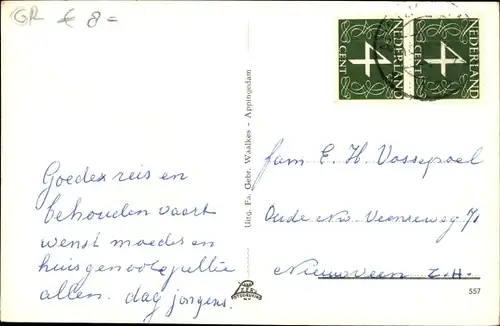 GR € 8 =
4
CENT
NEDERLAND
4
CENT
NEDERLAND
Uitg. Fa. Gebr. Waalkes - Appingedam
Goedereis en
behouden vaart
wenst moeder en
huisgenote jullie
allen. dag jongens.
fam E. H. Vossepoel
Oude Nw. Veenseweg 71
Nieuwveen Z.H.
557